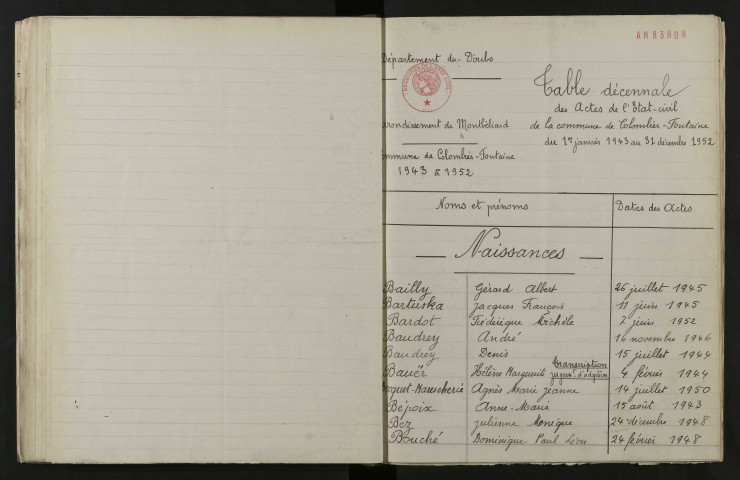 AM83808
Département du Doubs
Table décennale
des Actes de l'Etat-civil
Arrondissement de Montbéliard
de la commune de Colombier-Fontaine
du 1er janvier 1943 au 31 décembre 1952
Commune de Colombier-Fontaine
1943 à 1952
Noms et prénoms Dates des Actes
Naissances
Bailly Gérard Albert 26 juillet 1945
Bartuska Jacques François 11 juin 1945
Bardot Frédérique Michèle 2 juin 1952
Baudrey André 16 novembre 1946
Baudrey Denis 15 juillet 1944
transcription
Bauër Hélène Marguerite jugem. d'adoption 4 février 1944
Agnès Marie Jeanne 14 juillet 1950
Béjoix Anne-Marie 15 août 1943
Bez Julienne Monique 24 décembre 1948
Bouché Dominique Paul Léon 24 février 1948